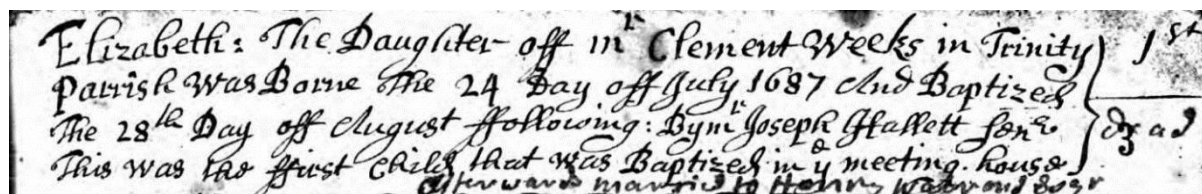 Elizabeth: The Daughter off mr Clement Weeks in Trinity
Parrish Was Borne The 24 Day off July 1687 And Baptized
The 28th Day off August ffollowing: By mr Joseph Hallett senr
This was the ffirst Child that was Baptized in ye meeting house
afterwards married to Henry
1st